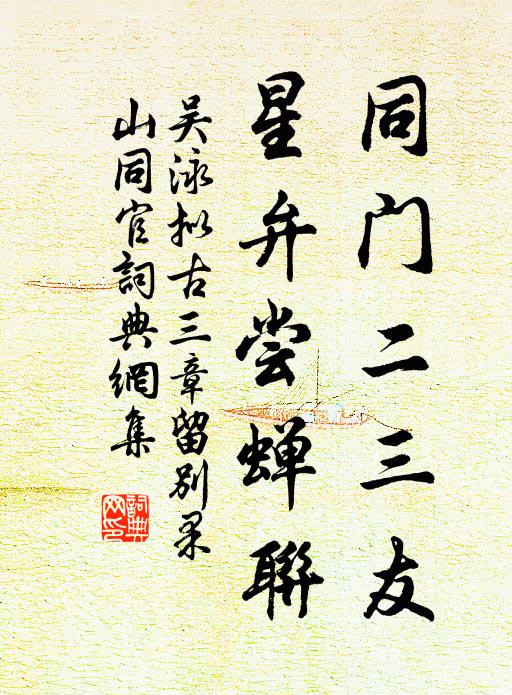 同门二三友
星弁尝蝉聯
吴泳拟古三章留别果
山同官詞典網集
詞典网印